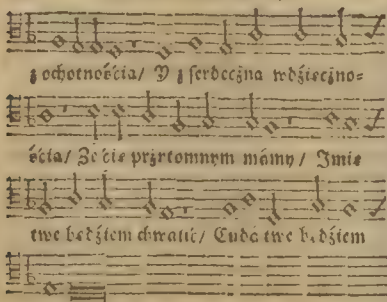 z ochotnością/ Y z serdeczną wdzięczno=
ścią/ Że cię przytomnym mámy/ Imię
twe będziem chwalić/ Cudá twe będziem